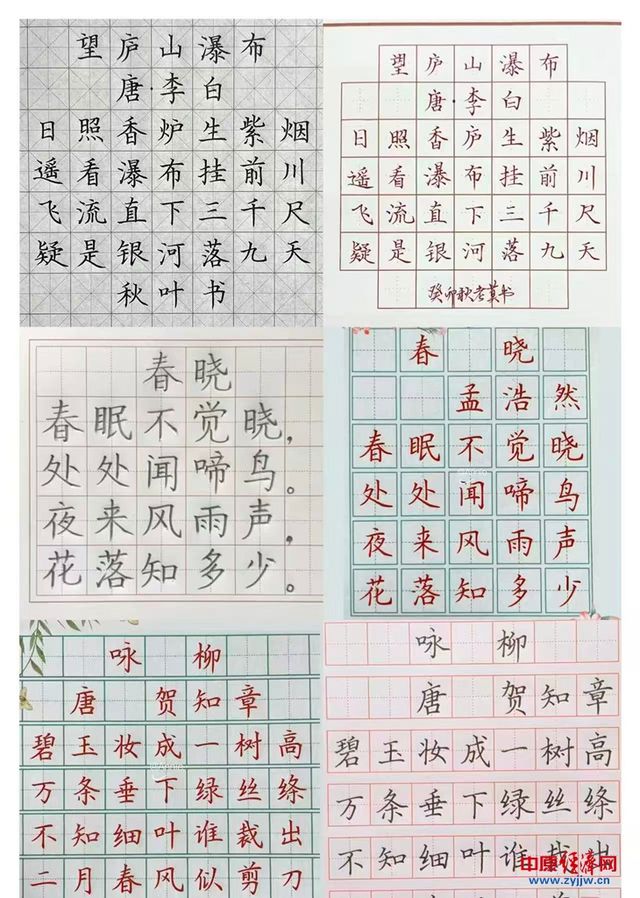 望庐山瀑布
唐·李白
日照香炉生紫烟
遥看瀑布挂前川
飞流直下三千尺
疑是银河落九天
秋叶书
望庐山瀑布
唐·李白
日照香庐生紫烟
遥看瀑布挂前川
飞流直下三千尺
疑是银河落九天
癸卯秋君莫书
春晓
春眠不觉晓，
处处闻啼鸟。
夜来风雨声，
花落知多少。
春晓
孟浩然
春眠不觉晓
处处闻啼鸟
夜来风雨声
花落知多少
咏柳
唐 贺知章
碧玉妆成一树高
万条垂下绿丝绦
不知细叶谁裁出
二月春风似剪刀
咏柳
唐 贺知章
碧玉妆成一树高
万条垂下绿丝绦
不知细叶谁裁出
中康经济网
www.zyjjw.cn